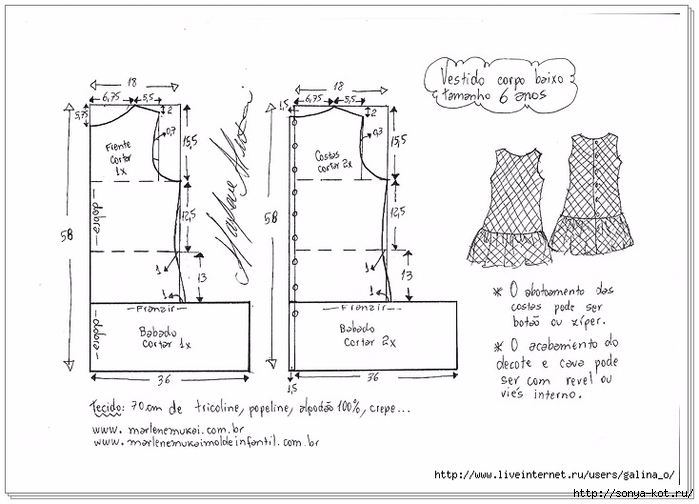 Vestido corpo baixo
tamanho 6 anos
18
6,75 5,5
5,75
2
0,7
15,5
Frente
cortar
1x
dobra
12,5
58
1
1
13
Franzir
dobra
Babado
cortar 1x
36
18
1,5
6,75 5,5
2
0,3
15,5
Costas
cortar 2x
12,5
58
1
1
13
Franzir
Babado
cortar 2x
1,5
36
* O abotoamento das
costas pode ser
botão ou zíper.
* O acabamento do
decote e cava pode
ser com revel ou
viés interno.
Tecido: 70cm de tricoline, popeline, algodão 100%, crepe...
www.marlenemukai.com.br
www.marlenemukaimoldeinfantil.com.br
http://www.liveinternet.ru/users/galina_o/
http://sonya-kot.ru/